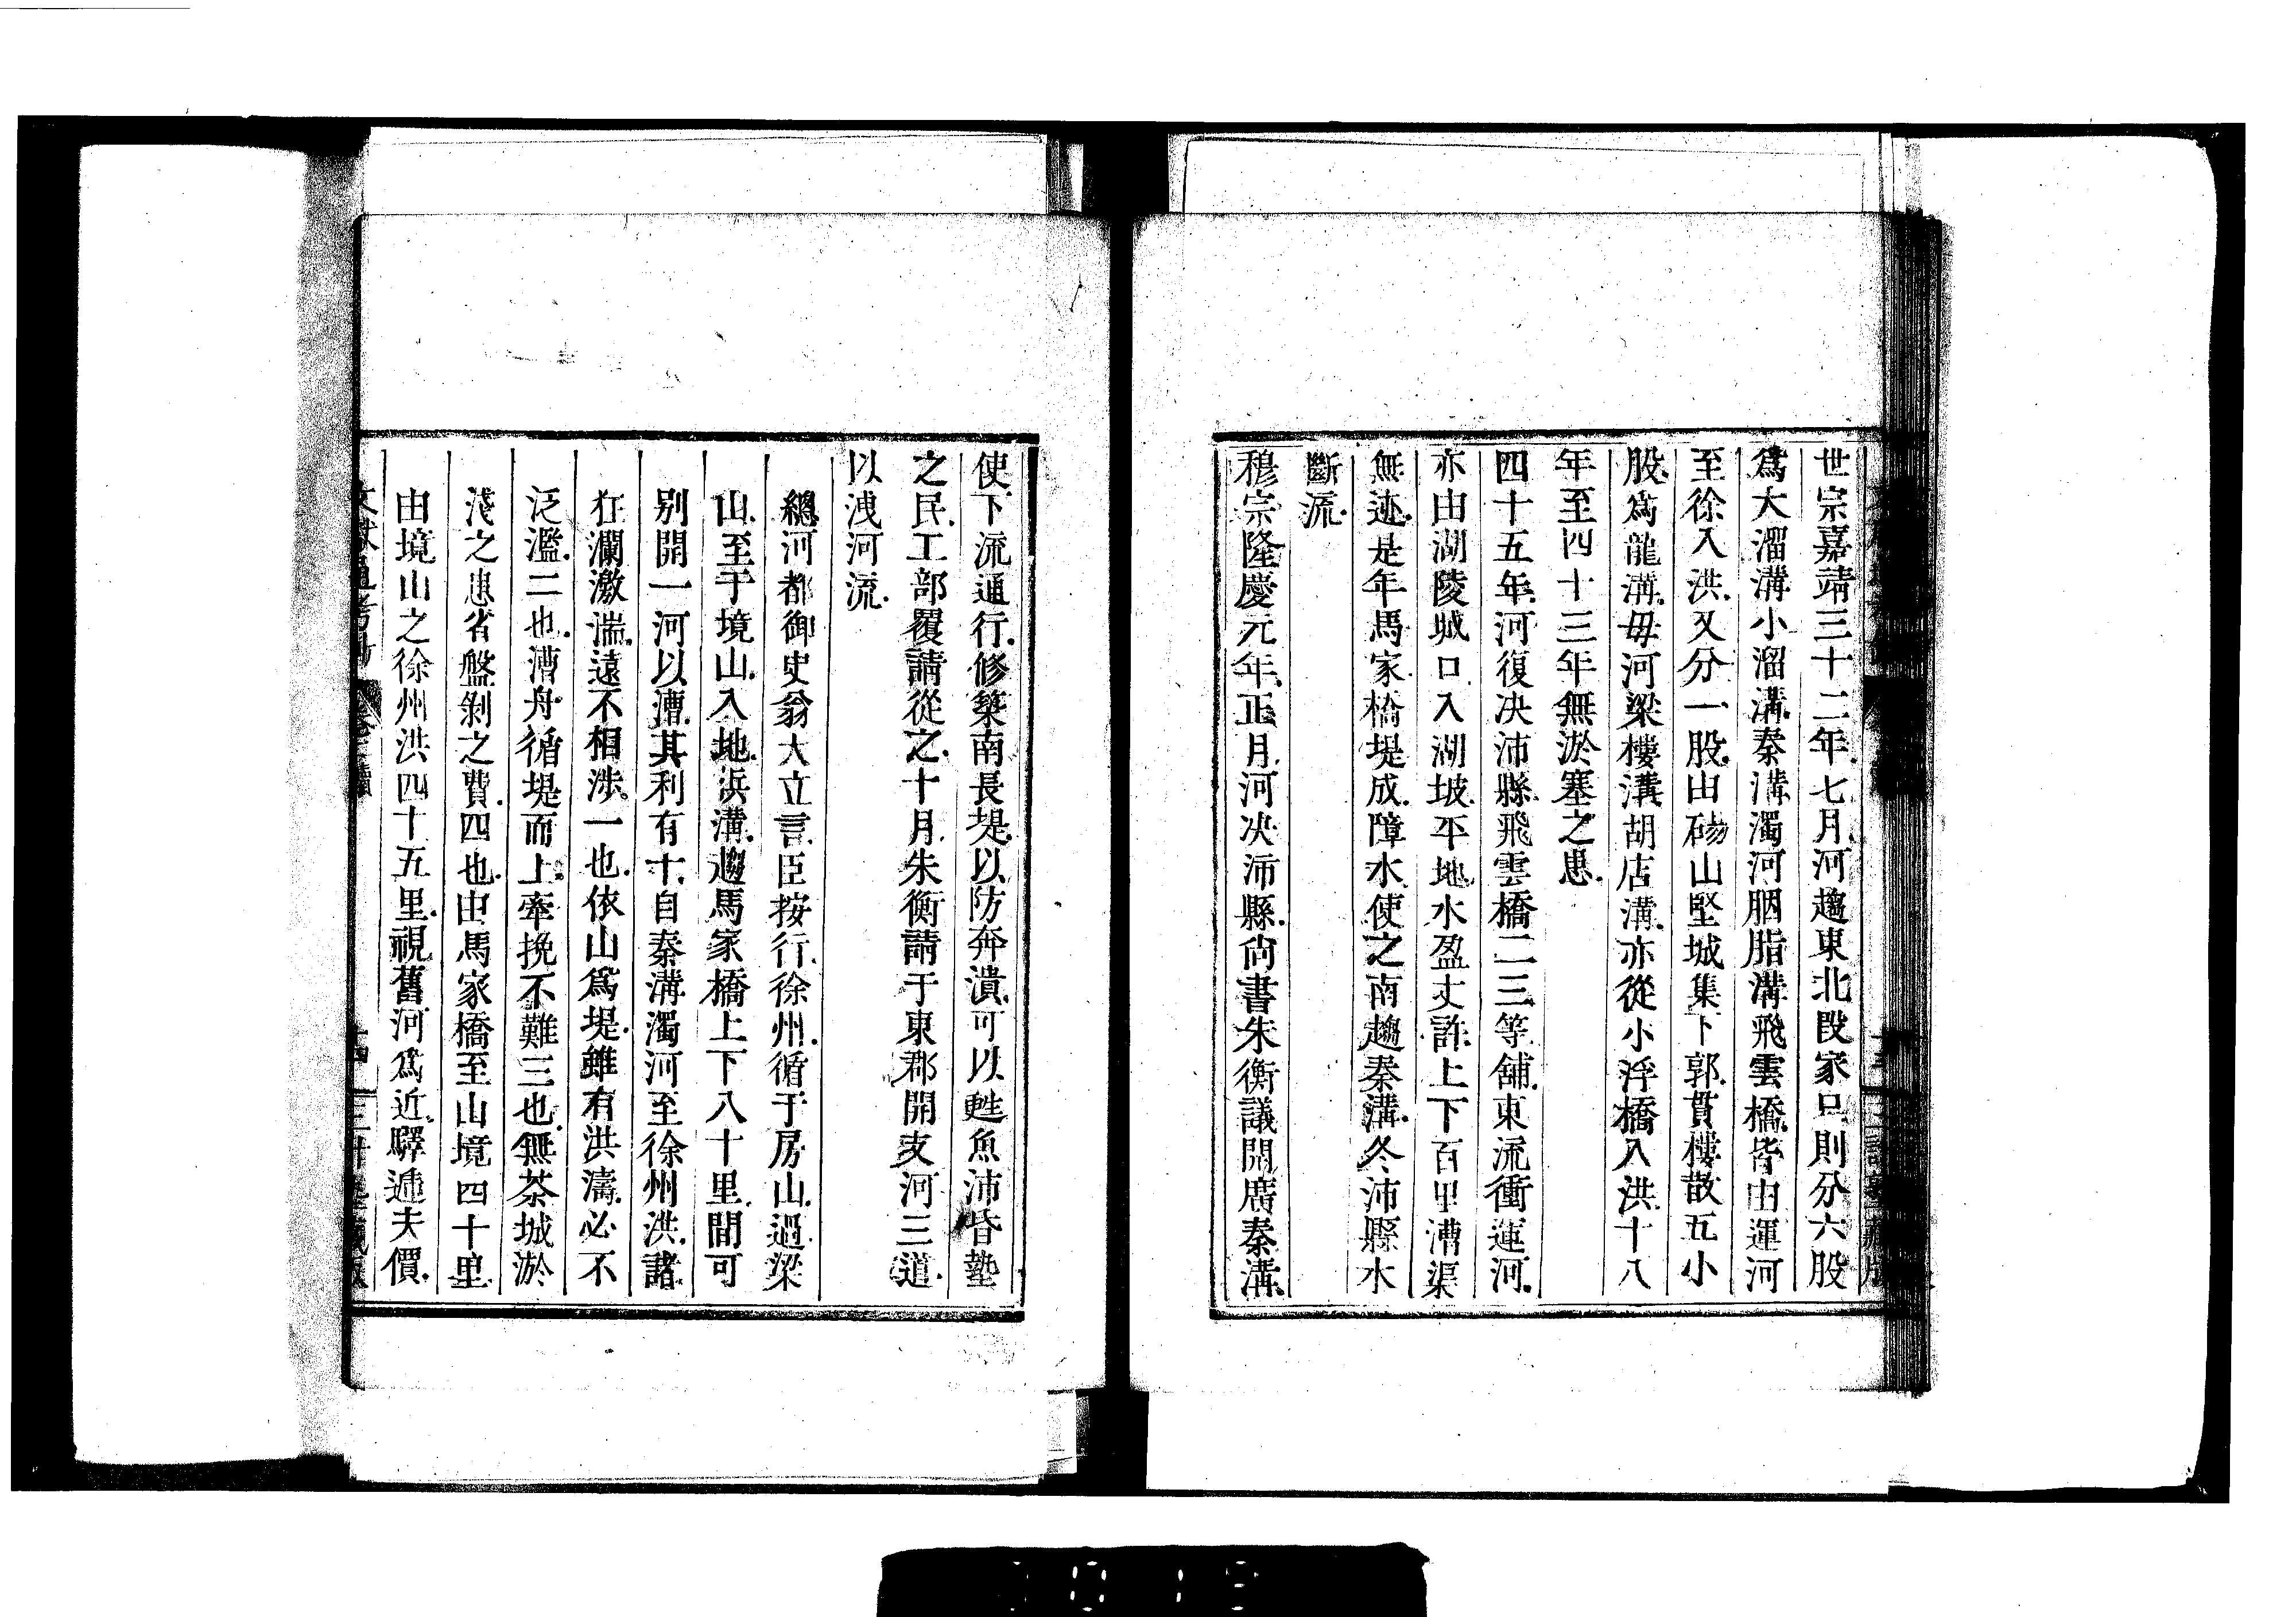 世宗嘉靖三十二年七月河趨東北段家口則分六股
爲大溜溝小溜溝秦溝濁河胭脂溝飛雲橋皆由運河
至徐入洪又分一股由碭山堅城集下郭貫樓散五小
股爲龍溝母河梁樓溝胡店溝亦從小浮橋入洪十八
年至四十三年無淤塞之患
四十五年河復決沛縣飛雲橋二三等舖東流衝運河
亦由湖陵城口入湖坡平地水盈丈許上下百里漕渠
無迹是年馬家橋堤成障水使之南趨秦溝冬沛縣水
斷流
穆宗隆慶元年正月河決沛縣尚書朱衡議開廣秦溝
使下流通行修築南長堤以防奔潰可以甦魚沛昏墊
之民工部覆請從之十月朱衡請于東郡開支河三道
以洩河流
總河都御史翁大立言臣按行徐州循于房山過梁
山至于境山入地浜溝趨馬家橋上下八十里間可
别開一河以漕其利有十自秦溝濁河至徐州洪諸
狂瀾激湍遠不相涉一也依山爲堤雖有洪濤必不
泛濫二也漕舟循堤而上牽挽不難三也無茶城淤
淺之患省盤剝之費四也由馬家橋至山境四十里
由境山之徐州洪四十五里視舊河爲近驛遞夫價